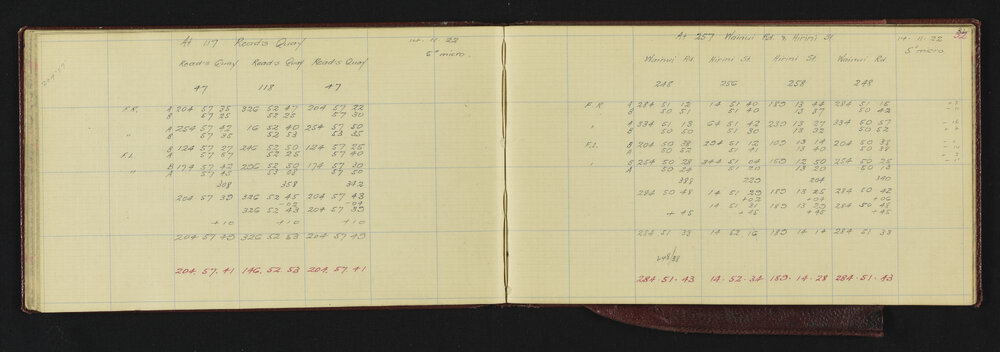 At 117 Reads Quay 14. 11. 22
5" micro.
Reads Quay Reads Quay Reads Quay
47 118 47
F.R. A 204 57 35 326 52 47 204 57 22
B 57 25 52 25 57 30
" A 254 57 42 16 52 40 254 57 50
B 57 35 52 53 53 35
F.L. B 124 57 27 246 52 50 124 57 25
A 57 57 52 25 57 40
" B 174 57 42 296 52 50 174 57 30
A 57 45 53 08 57 50
308 358 342
204 57 39 326 52 45 204 57 43
-02 -04
326 52 43 204 57 39
+10 +10 +10
204 57 49 326 52 53 204 57 49
204. 57. 41 146. 52. 53 204. 57. 41
32
At 257 Wainui Rd. & Hirini St 14. 11. 22
5" micro
Wainui Rd. Hirini St Hirini St Wainui Rd
248 256 258 248
F.R. A 284 51 12 14 51 40 189 13 44 284 51 16
B 50 51 51 40 13 37 50 42
" A 334 51 13 64 51 42 239 13 27 334 50 57
B 50 50 51 30 13 32 50 52
F.L. B 204 50 38 294 51 12 109 13 14 204 50 38
A 50 52 51 41 13 40 50 39
" B 254 50 28 344 51 04 159 12 50 254 50 25
A 50 24 51 20 13 20 50 13
388 229 204 340
284 50 48 14 51 29 189 13 25 284 50 42
+02 +04 +06
14 51 31 189 13 29 284 50 48
+45 +45 +45 +45
284 51 33 14 52 16 189 14 14 284 51 33
284. 51. 43 14. 52. 34 189. 14. 28 284. 51. 43